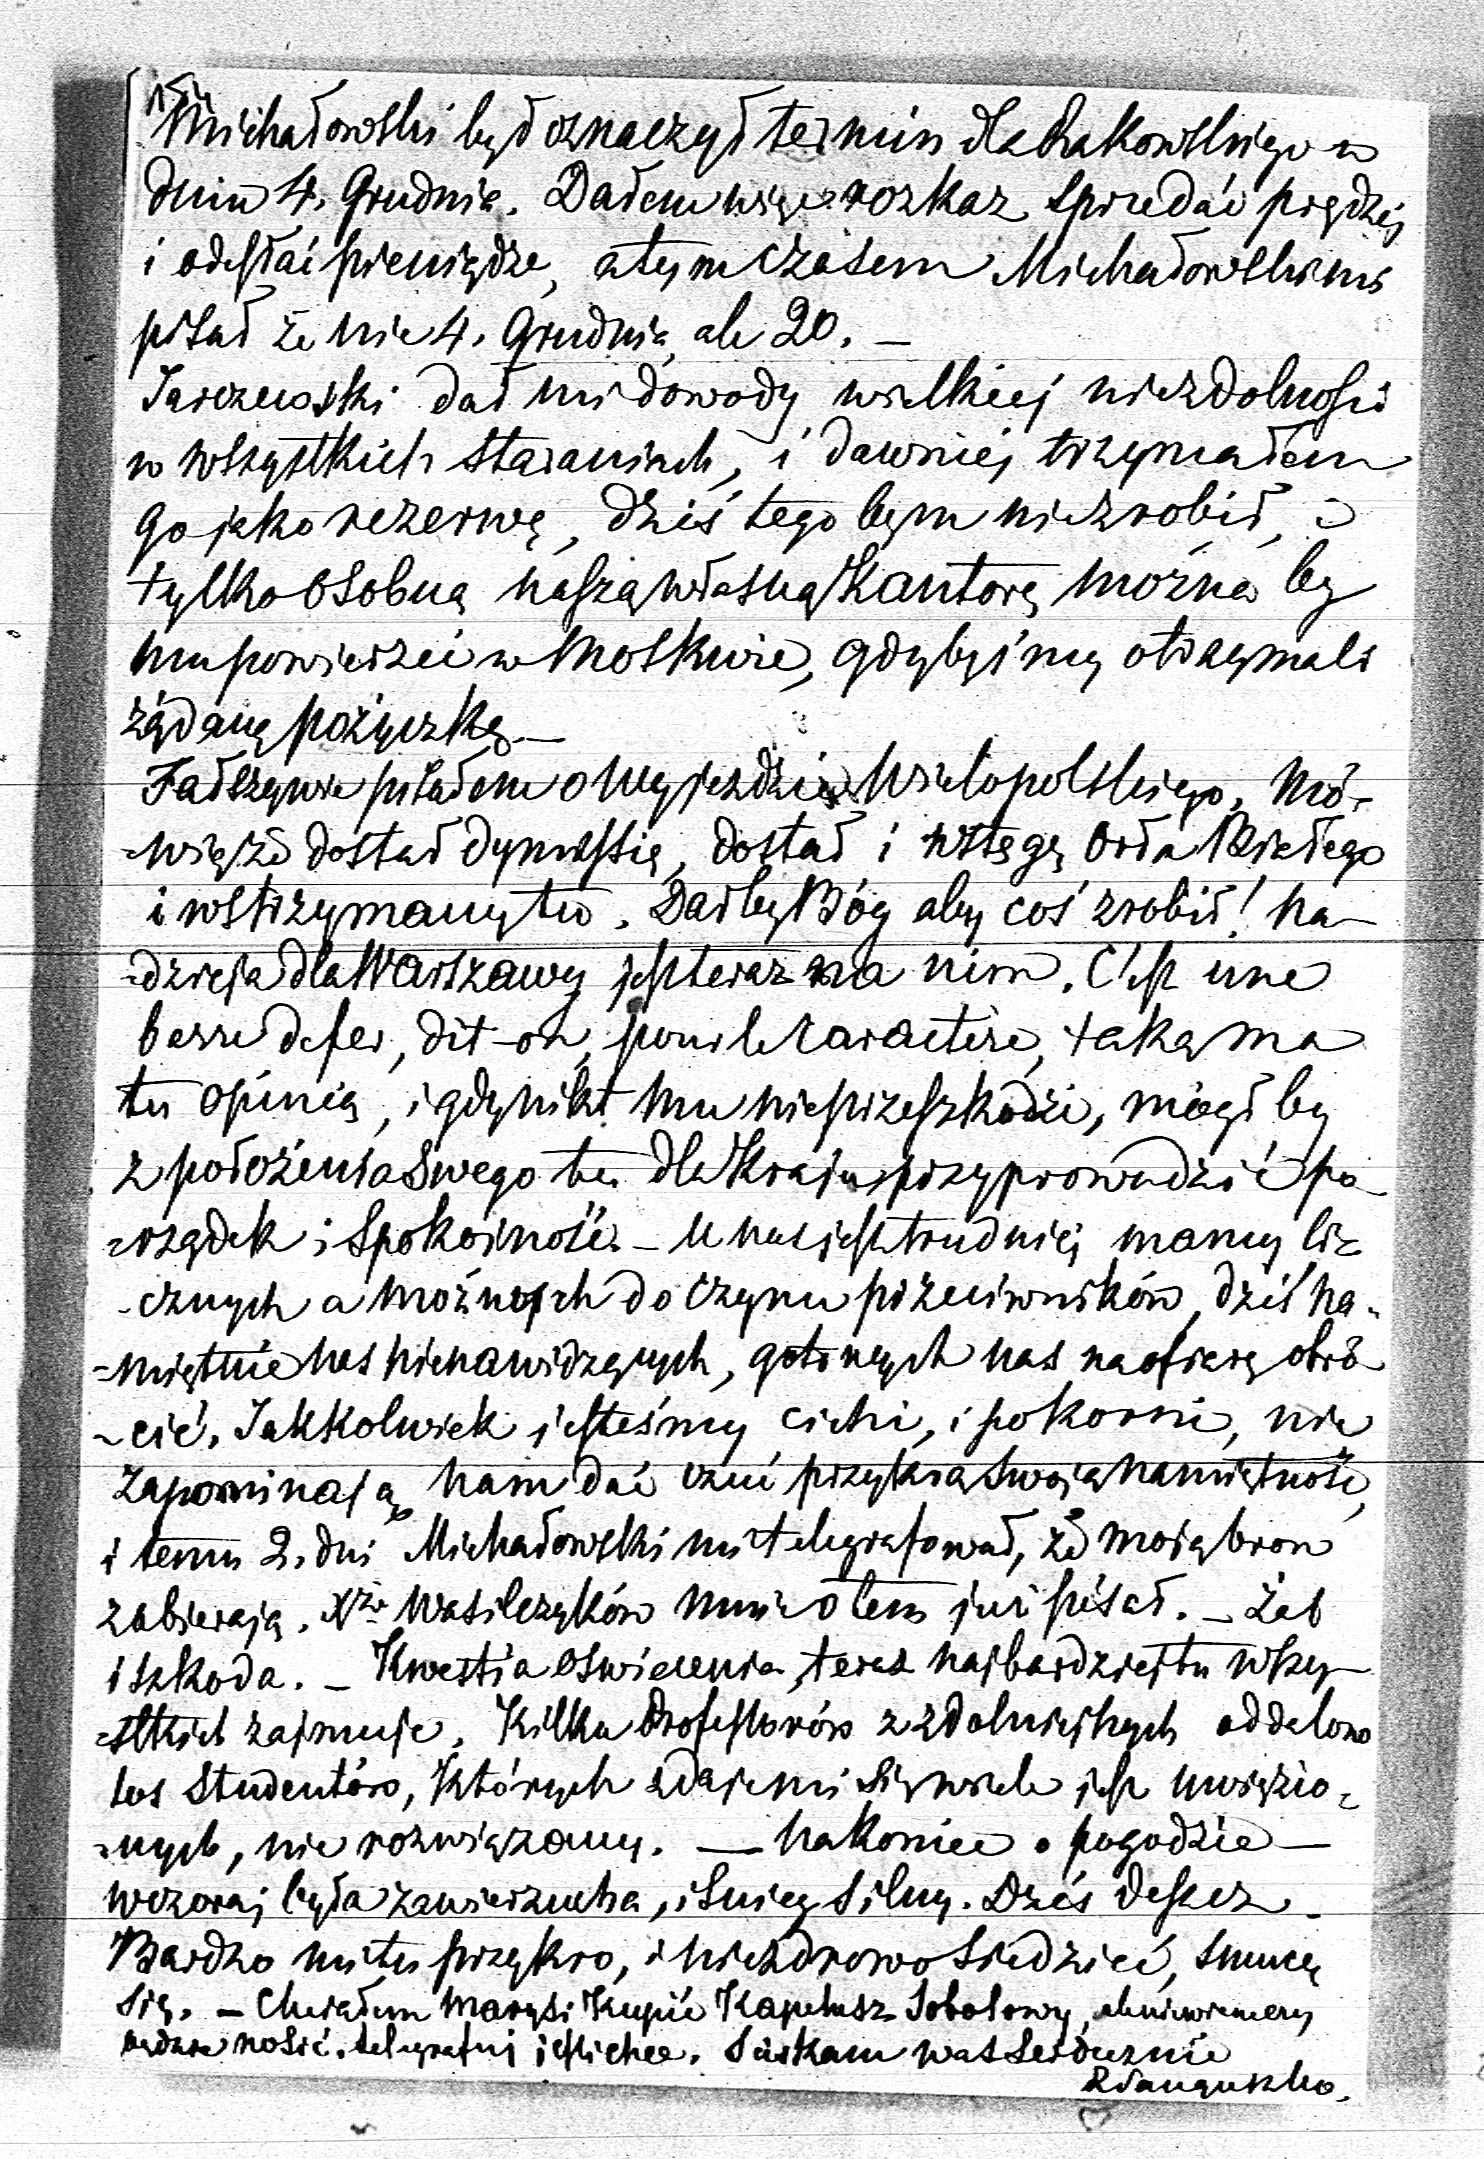 154
Michałowski był oznaczył termin dla Rakowskiego w
dniu 4. Grudnia. Dałem więc rozkaz sprzedać prędzej
i odesłać pieniądze, a tymczasem Michałowski mi
pisał że nie 4. Grudnia, ale 20. —
Jarczewski dał mi dowody wielkiej niezdolności
w wszystkich staraniach, i dawniej trzymałem
go jako rezerwę, dziś tego bym nie zrobił, i
tylko osobną naszą własną Kantorę można by
mu powierzei w Moskwie, gdybyśmy otrzymali
żądaną pożyczkę. —
Fałszywie pisałem o wyjezdzie Wielopolskiego. Mó-
-wią że dostał dymissię, dostał i wstęgę Orła Białego
i wstrzymany tu. Dał by Bóg aby coś zrobił! Na-
-dzieja dla Warszawy jest teraz na nim. C'est une
barre de fer, dit-on, pour le caractère, taką ma
tu opinią, i gdy nikt mu nie przeszkodzi, mógł by
z położenia swego tu dla Kraju przyprowadzić po-
-rządek i Spokojność. — U nas jest trudniej mamy li-
-cznych a możnych do czynu przeciwników, dziś na-
-miętnie nas nienawidzących, gotowych nas na ofiarę obró-
-cić. Jakkolwiek jesteśmy cichi, i pokorni, nie
zapominają nam dać czuć przykrą swoją namiętność,
i temu 2. dni Michałowski mi telegrafował, że moją bron
zabierają. Xże Wasilczyków mnie o tem już pisał. — Żal
i szkoda. — Kwestia oswiecenia, teraz najbardziej tu wszy-
-stkich zajmuje. Kilku Professorów z zdolniejszych oddalono
los Studentów, Których zdaje mi się wiele jest uwięzio-
-nych, nie rozwiązany. — Nakoniec o pogodzie —
wczoraj była zawierzucha, i śnieg silny. Dziś deszcz.
Bardzo mi tu przykro, i niezdrowo siedzieć, smucę
się. — Chciałem Marysi Kupić Kapelusz Sobolowy, ale nie wiem czy
będzie nosić. telegrafuj jeśli chce. Sciskam was serdecznie
RSanguszko.